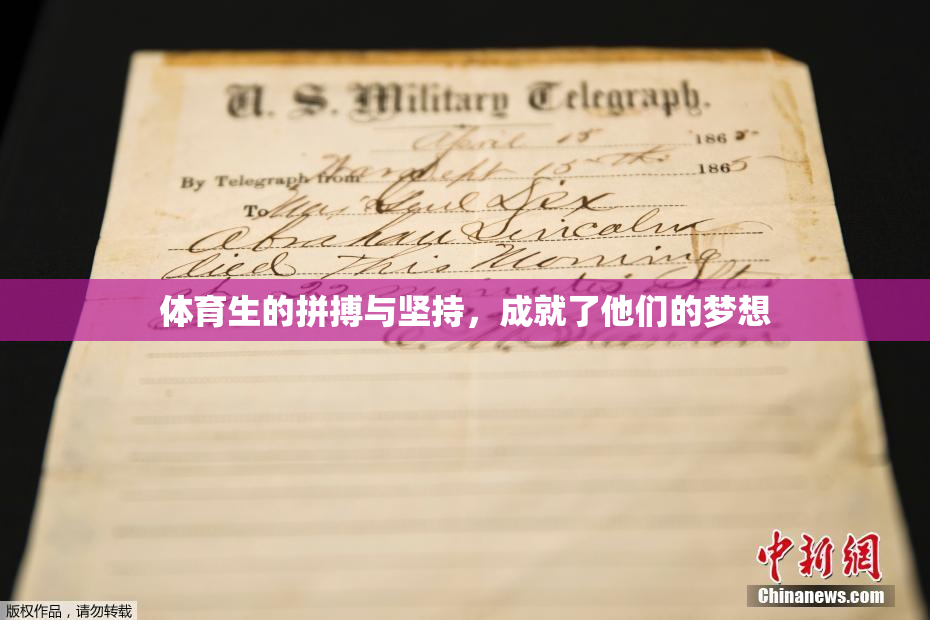 U. S. Military Telegraph.
April 15 1865
By Telegraph from War Dept 15th 1865
To Maj Genl Dix
Abraham Lincoln
died This Morning
at 22 minutes after
体育生的拼搏与坚持，成就了他们的梦想
E. M. Stanton
中新网
Chinanews.com
版权作品，请勿转载